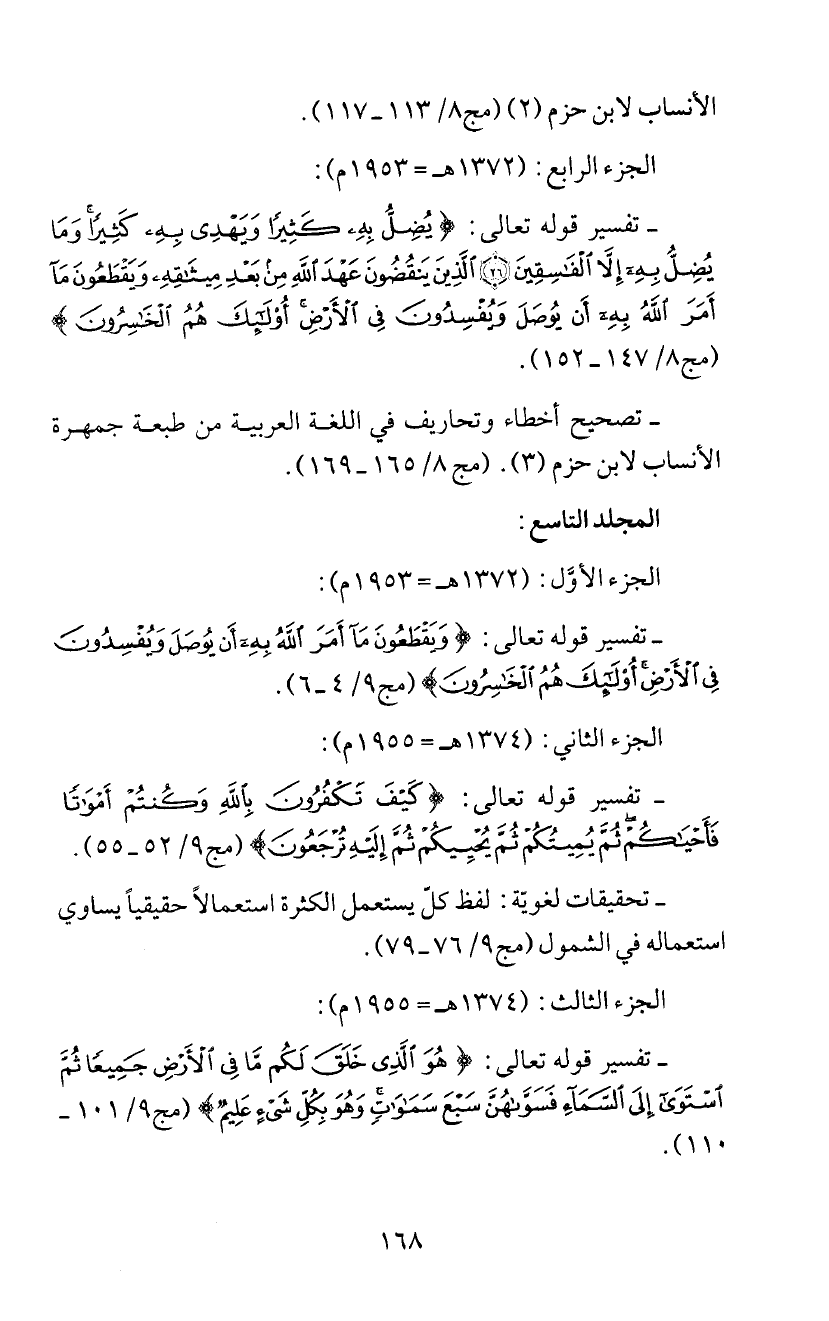 الأنساب لابن حزم (٢) (مج٨/ ١١٣ ـ ١١٧).
الجزء الرابع: (١٣٧٢هـ = ١٩٥٣م):
ـ تفسير قوله تعالى: ﴿ يُضِلُّ بِهِۦ كَثِيرًا وَيَهْدِى بِهِۦ كَثِيرًاۚ وَمَا
يُضِلُّ بِهِۦٓ إِلَّا ٱلْفَٰسِقِينَ ۝٢٦ ٱلَّذِينَ يَنقُضُونَ عَهْدَ ٱللَّهِ مِنۢ بَعْدِ مِيثَٰقِهِۦ وَيَقْطَعُونَ مَآ
أَمَرَ ٱللَّهُ بِهِۦٓ أَن يُوصَلَ وَيُفْسِدُونَ فِى ٱلْأَرْضِۚ أُو۟لَٰٓئِكَ هُمُ ٱلْخَٰسِرُونَ ﴾
(مج٨/ ١٤٧ ـ ١٥٢).
ـ تصحيح أخطاء وتحاريف في اللغة العربية من طبعة جمهرة
الأنساب لابن حزم (٣). (مج ٨/ ١٦٥ ـ ١٦٩).
المجلد التاسع:
الجزء الأوَّل: (١٣٧٢هـ = ١٩٥٣م):
ـ تفسير قوله تعالى: ﴿ وَيَقْطَعُونَ مَآ أَمَرَ ٱللَّهُ بِهِۦٓ أَن يُوصَلَ وَيُفْسِدُونَ
فِى ٱلْأَرْضِۚ أُو۟لَٰٓئِكَ هُمُ ٱلْخَٰسِرُونَ﴾ (مج٩/ ٤ ـ ٦).
الجزء الثاني: (١٣٧٤هـ = ١٩٥٥م):
ـ تفسير قوله تعالى: ﴿كَيْفَ تَكْفُرُونَ بِٱللَّهِ وَكُنتُمْ أَمْوَٰتًا
فَأَحْيَٰكُمْۖ ثُمَّ يُمِيتُكُمْ ثُمَّ يُحْيِيكُمْ ثُمَّ إِلَيْهِ تُرْجَعُونَ﴾ (مج٩/ ٥٢ ـ ٥٥).
ـ تحقيقات لغويّة: لفظ كلّ يستعمل الكثرة استعمالاً حقيقياً يساوي
استعماله في الشمول (مج٩/ ٧٦ ـ ٧٩).
الجزء الثالث: (١٣٧٤هـ = ١٩٥٥م):
ـ تفسير قوله تعالى: ﴿ هُوَ ٱلَّذِى خَلَقَ لَكُم مَّا فِى ٱلْأَرْضِ جَمِيعًا ثُمَّ
ٱسْتَوَىٰٓ إِلَى ٱلسَّمَآءِ فَسَوَّىٰهُنَّ سَبْعَ سَمَٰوَٰتٍۚ وَهُوَ بِكُلِّ شَىْءٍ عَلِيمٌ﴾ (مج٩/ ١٠١ ـ
١١٠).
١٦٨